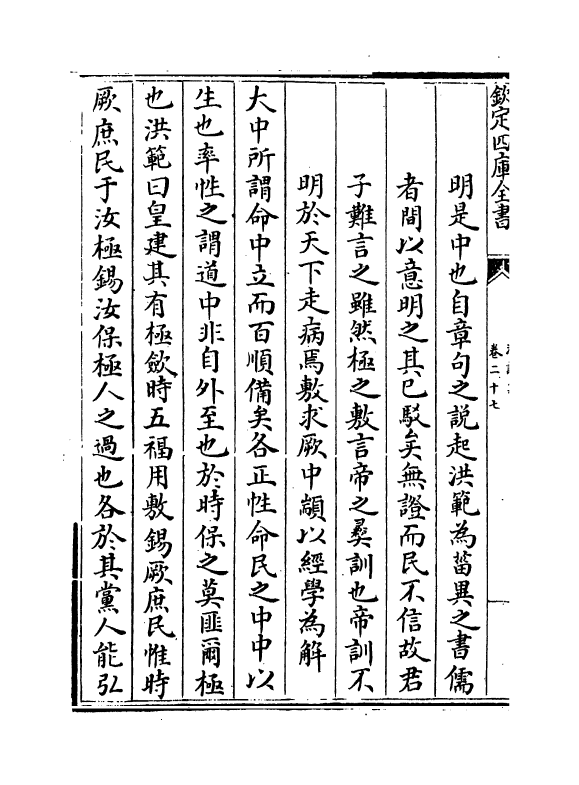 欽定四庫全書
卷二十七
明是中也自章句之說起洪範為菑異之書儒
者間以意明之其已駁矣無證而民不信故君
子難言之雖然極之敷言帝之彞訓也帝訓不
明於天下走病焉敷求厥中顓以經學為解
大中所謂命中立而百順備矣各正性命民之中中以
生也率性之謂道中非自外至也於時保之莫匪爾極
也洪範曰皇建其有極斂時五福用敷錫厥庶民惟時
厥庶民于汝極錫汝保極人之過也各於其黨人能弘